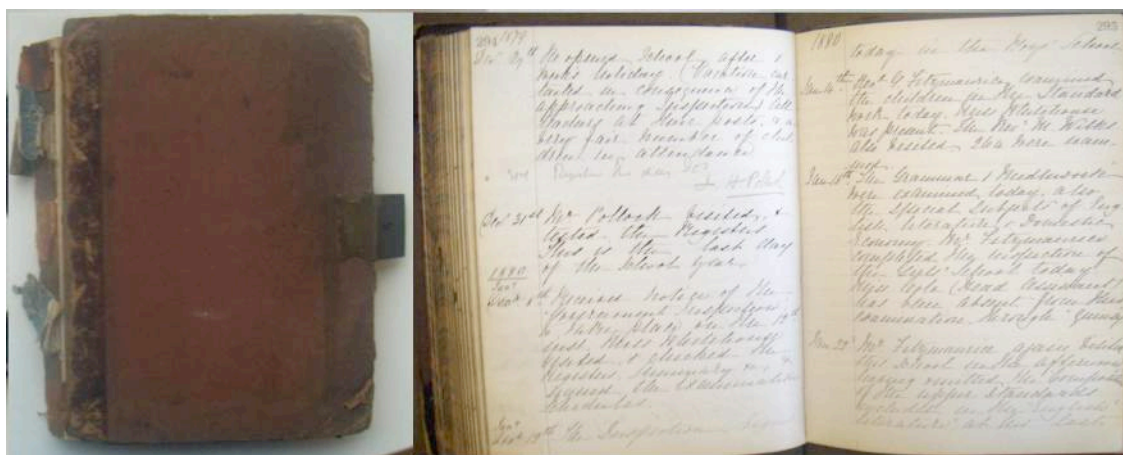 294 1879
Dec 29th Re opened School, after a
week's holiday (Vacation cur
tailed in consequence of the
approaching Inspection) All
Teachers at their posts, & a
very fair number of chil
dren in attendance
Registers this day
Dec 31st Mr Pollock visited, &
tested the Registers
This is the last day
of the School year.
1880
Jany
6th Received notice of the
Government Inspection
to take place on the 19th
inst. Miss Whitehouse
visited, & checked the
Register, Summary &c. &
signed the Examination
Schedules.
Jany
19th The Inspection
295
1880
today in the Boys' School
Revd G Fitzmaurice examined
the children in the Standard
work today. Miss Whitehouse
was present. The Rev. M. Wilks
also visited. 264 were exam
ined.
The Grammar & Needlework
were examined today, also
the Special Subjects of Eng
lish Literature & Domestic
Economy. Mr. Fitzmaurice
completed the inspection of
the Girls' School today
Miss (Head Assistant)
has been absent from this
examination, through
Jan 22nd Mr Fitzmaurice again visited
this School in the afternoon
having omitted the Compos
of the upper Standards
included in the English
Literature at his last